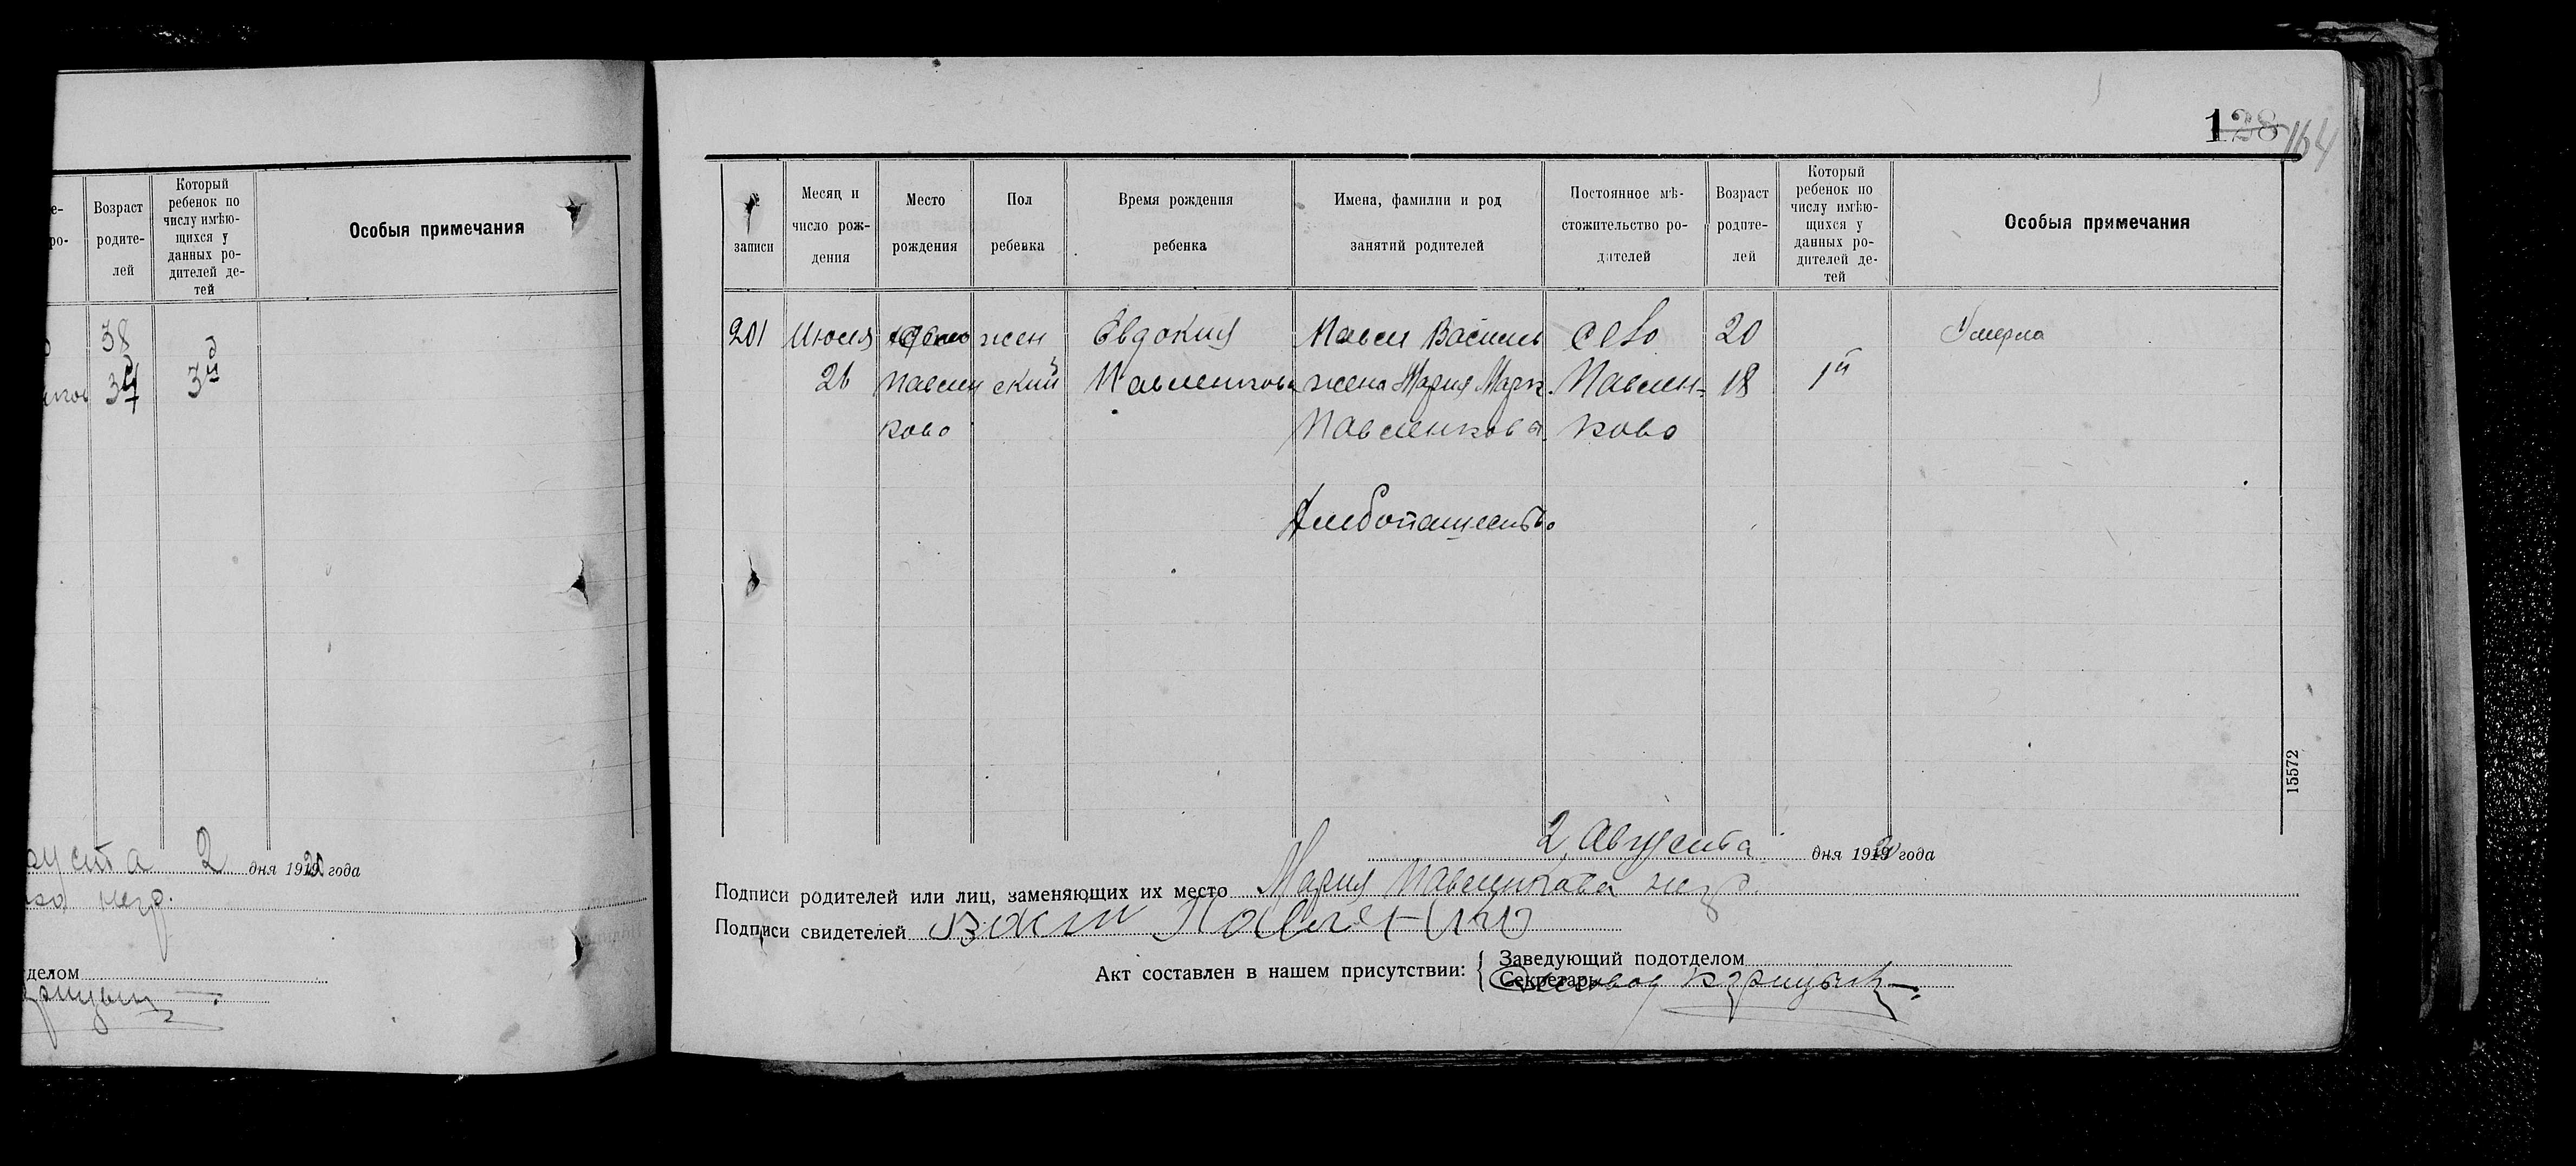 е-
ро-
Возраст
родите-
лей
Который
ребенок по
числу имѣю-
щихся у
данных ро-
дителей де-
тей
Особыя примечания
38
34
3й
густа 2 дня 1920 года
негр.
делом
128 164
№
записи
Месяц и
число рож-
дения
Место
рождения
Пол
ребенка
Время рождения
ребенка
Имена, фамилии и род
занятий родителей
Постоянное мѣ-
стожительство ро-
дителей
Возраст
родите-
лей
Который
ребенок по
числу имѣю-
щихся у
данных ро-
дителей де-
тей
Особыя примечания
201 Июля село жен Евдокия Павел Василь село 20 Умерла
26 Павлен ский Павленкова жена Мария Марк. Павлен- 18 1й
ково Павленковы. ково
Хлебопашество
2 Августа дня 1920 года
Подписи родителей или лиц, заменяющих их место Мария Павленкова негр.
Подписи свидетелей
Акт составлен в нашем присутствии:
Заведующий подотделом
Секретарь
15572